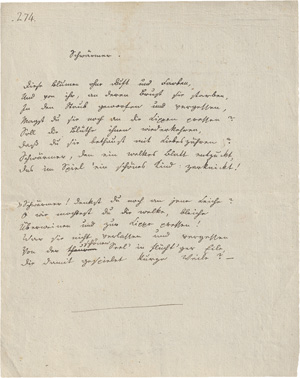 274.
Schwärmer.
Diese Blumen ohne Duft und Farben,
Und von ihr, an deren Brust sie starben,
In den Staub geworfen und vergessen,
Magst du sie noch an die Lippen pressen?
Soll die Blüthe ihnen wiederkehren,
Daß du sie bethaust mit Liebeszähren?
Schwärmer, den ein welkes Blatt entzückt,
Das im Spiel ein schönes Kind zerknickt!
Schwärmer! denkst du noch an jene Leiche?
O wie mochtest du die welke, bleiche
Überweinen und zur Lippe pressen!
War sie nicht verlassen und vergessen
Von der schönen Seel' in flücht'ger Eile,
Die damit gespielet kurze Weile? –